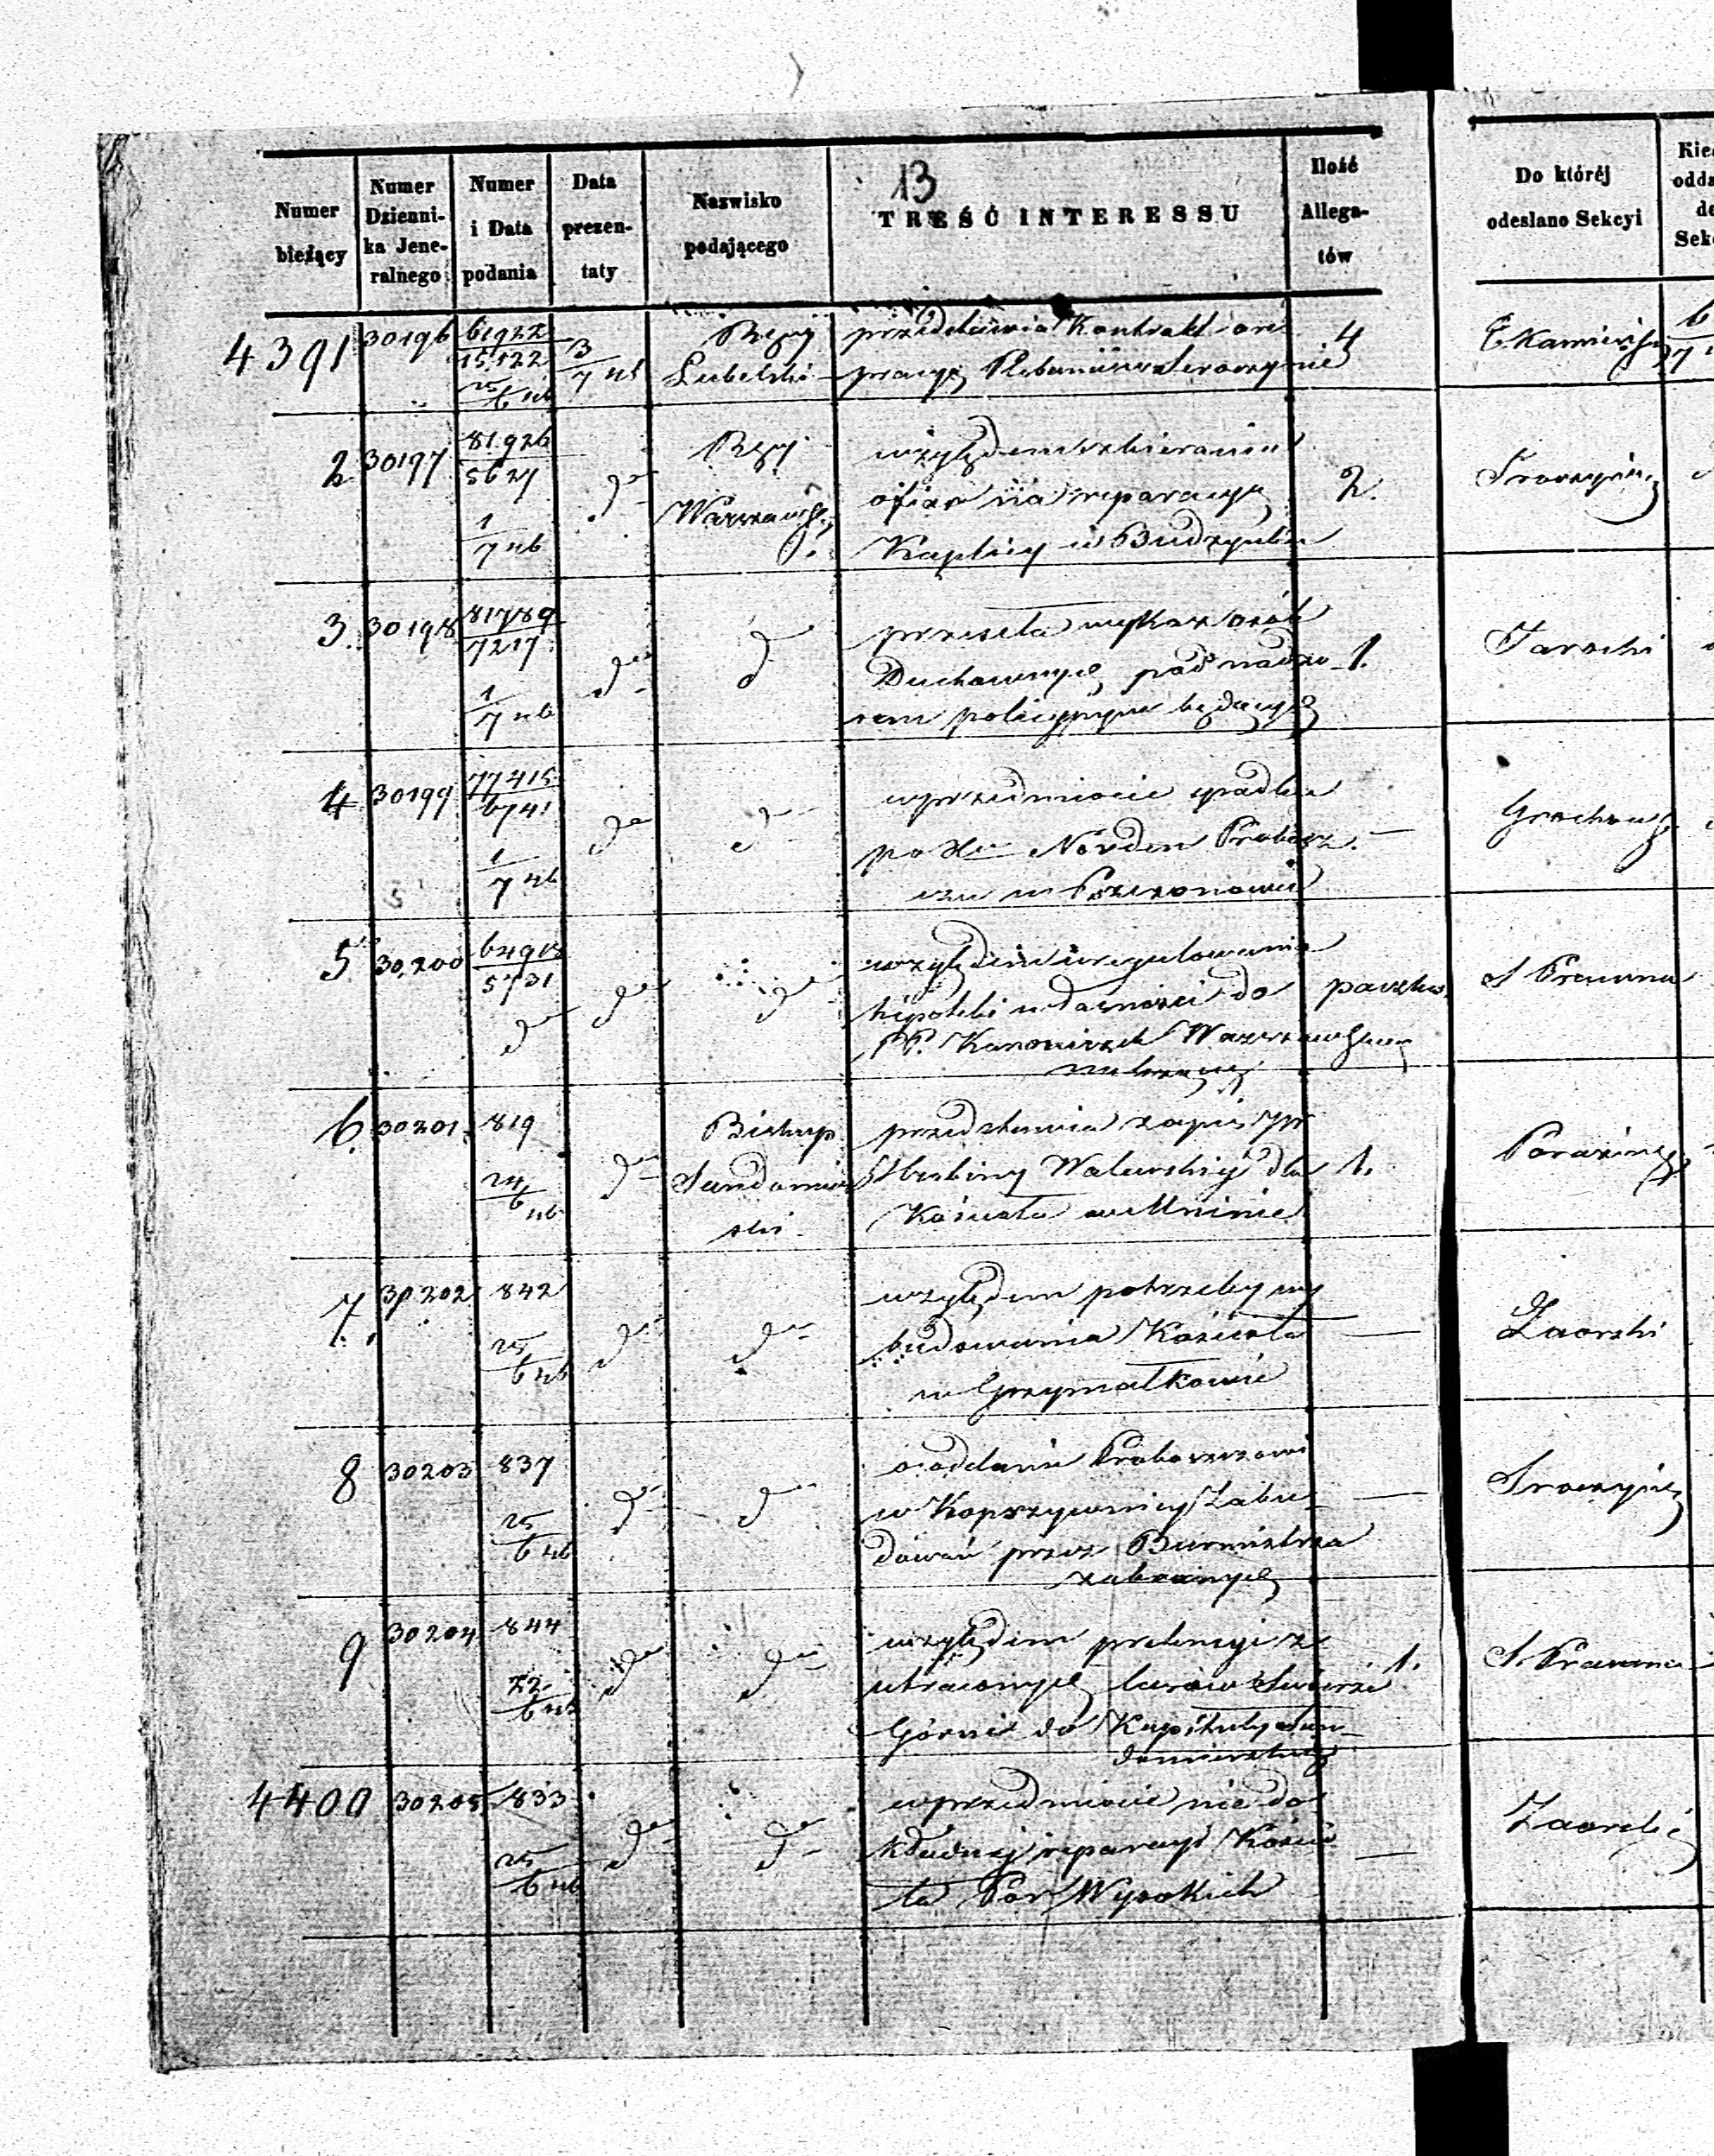 13
Numer bieżący
Numer Dzienni- ka Jene- ralnego
Numer i Data podania
Data prezen- taty
Nazwisko podającego
TREŚĆ INTERESSU
Ilość Allega- tów
Do któréj odesłano Sekcyi
4391 30196 61922/15122 25/6 46 3/7 46 Rząd Lubelski
przedstawia Kontrakt o re
pracyę Plebanii w Seroczynie
4
2 30197 81926/5627 1/7 46 do Rząd Warszawski
względem zbierania
ofiar na reparacyę
Kaplicy w Budzynku
2.
3. 30198 81789/7217 1/7 46 do d
przesyła wykaz osób
Duchownych pod nadzo
rem policyjnym będących
1.
Jarocki
4 30199 77415/6741 1/7 46 do d
w przedmiocie spadku
po Xu Norden Probosz
czu w
—
5 30,200 5731 do do d
względem uregulowania
hipoteki własności do
PP. Kanoniczek Warszawskich
należącej
S Prawna
6. 30201. 819 24/6 46 do Biskup Sandomir ski
przedstawia zapis
Walewskiej dla
Kościoła w Mninie
1.
7. 30202 842 25/6 46 do do
względem potrzeby wy
budowania Kościoła
w Grzymałkowie
—
Zaorski
8 30203 837 25/6 46 do do
o oddanie Proboszczowi
w Koprzywnicy Zabu
dowań przez Burmistrza
zabranych
—
9 30204 844 22/6 46 do do
względem pretensyi z
utraconych lasów Świerże
Górne do Kapituły San
domierskiej
1.
S. Prawna
4400 30205 833 25/6 46 do do
w przedmiocie nie do
kładnej reparacyi Kościo
ła Par Wysokich
—
Zaorski